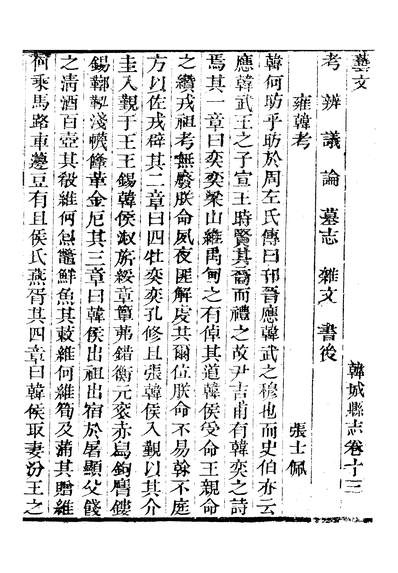 藝文
韓城縣志卷十三
考 辨 議 論 墓志 雜文 書後
雍韓考
張士佩
韓何助乎助於周左氏傳曰邘晉應韓武之穆也而史伯亦云
應韓武王之子宣王時賢其裔而禮之故尹吉甫有韓奕之詩
焉其一章曰奕奕梁山維禹甸之有倬其道韓侯受命王親命
之纘戎祖考無廢朕命夙夜匪解虔共爾位朕命不易榦不庭
方以佐戎辟其二章曰四牡奕奕孔修且張韓侯入覲以其介
圭入覲于王王錫韓侯淑旂綏章簟茀錯衡元袞赤舄鉤膺鏤
錫鞹鞃淺幭鞗革金厄其三章曰韓侯出祖出宿於屠顯父餞
之清酒百壺其殽維何炰鱉鮮魚其蔌維何維筍及蒲其贈維
何乘馬路車籩豆有且侯氏燕胥其四章曰韓侯取妻汾王之